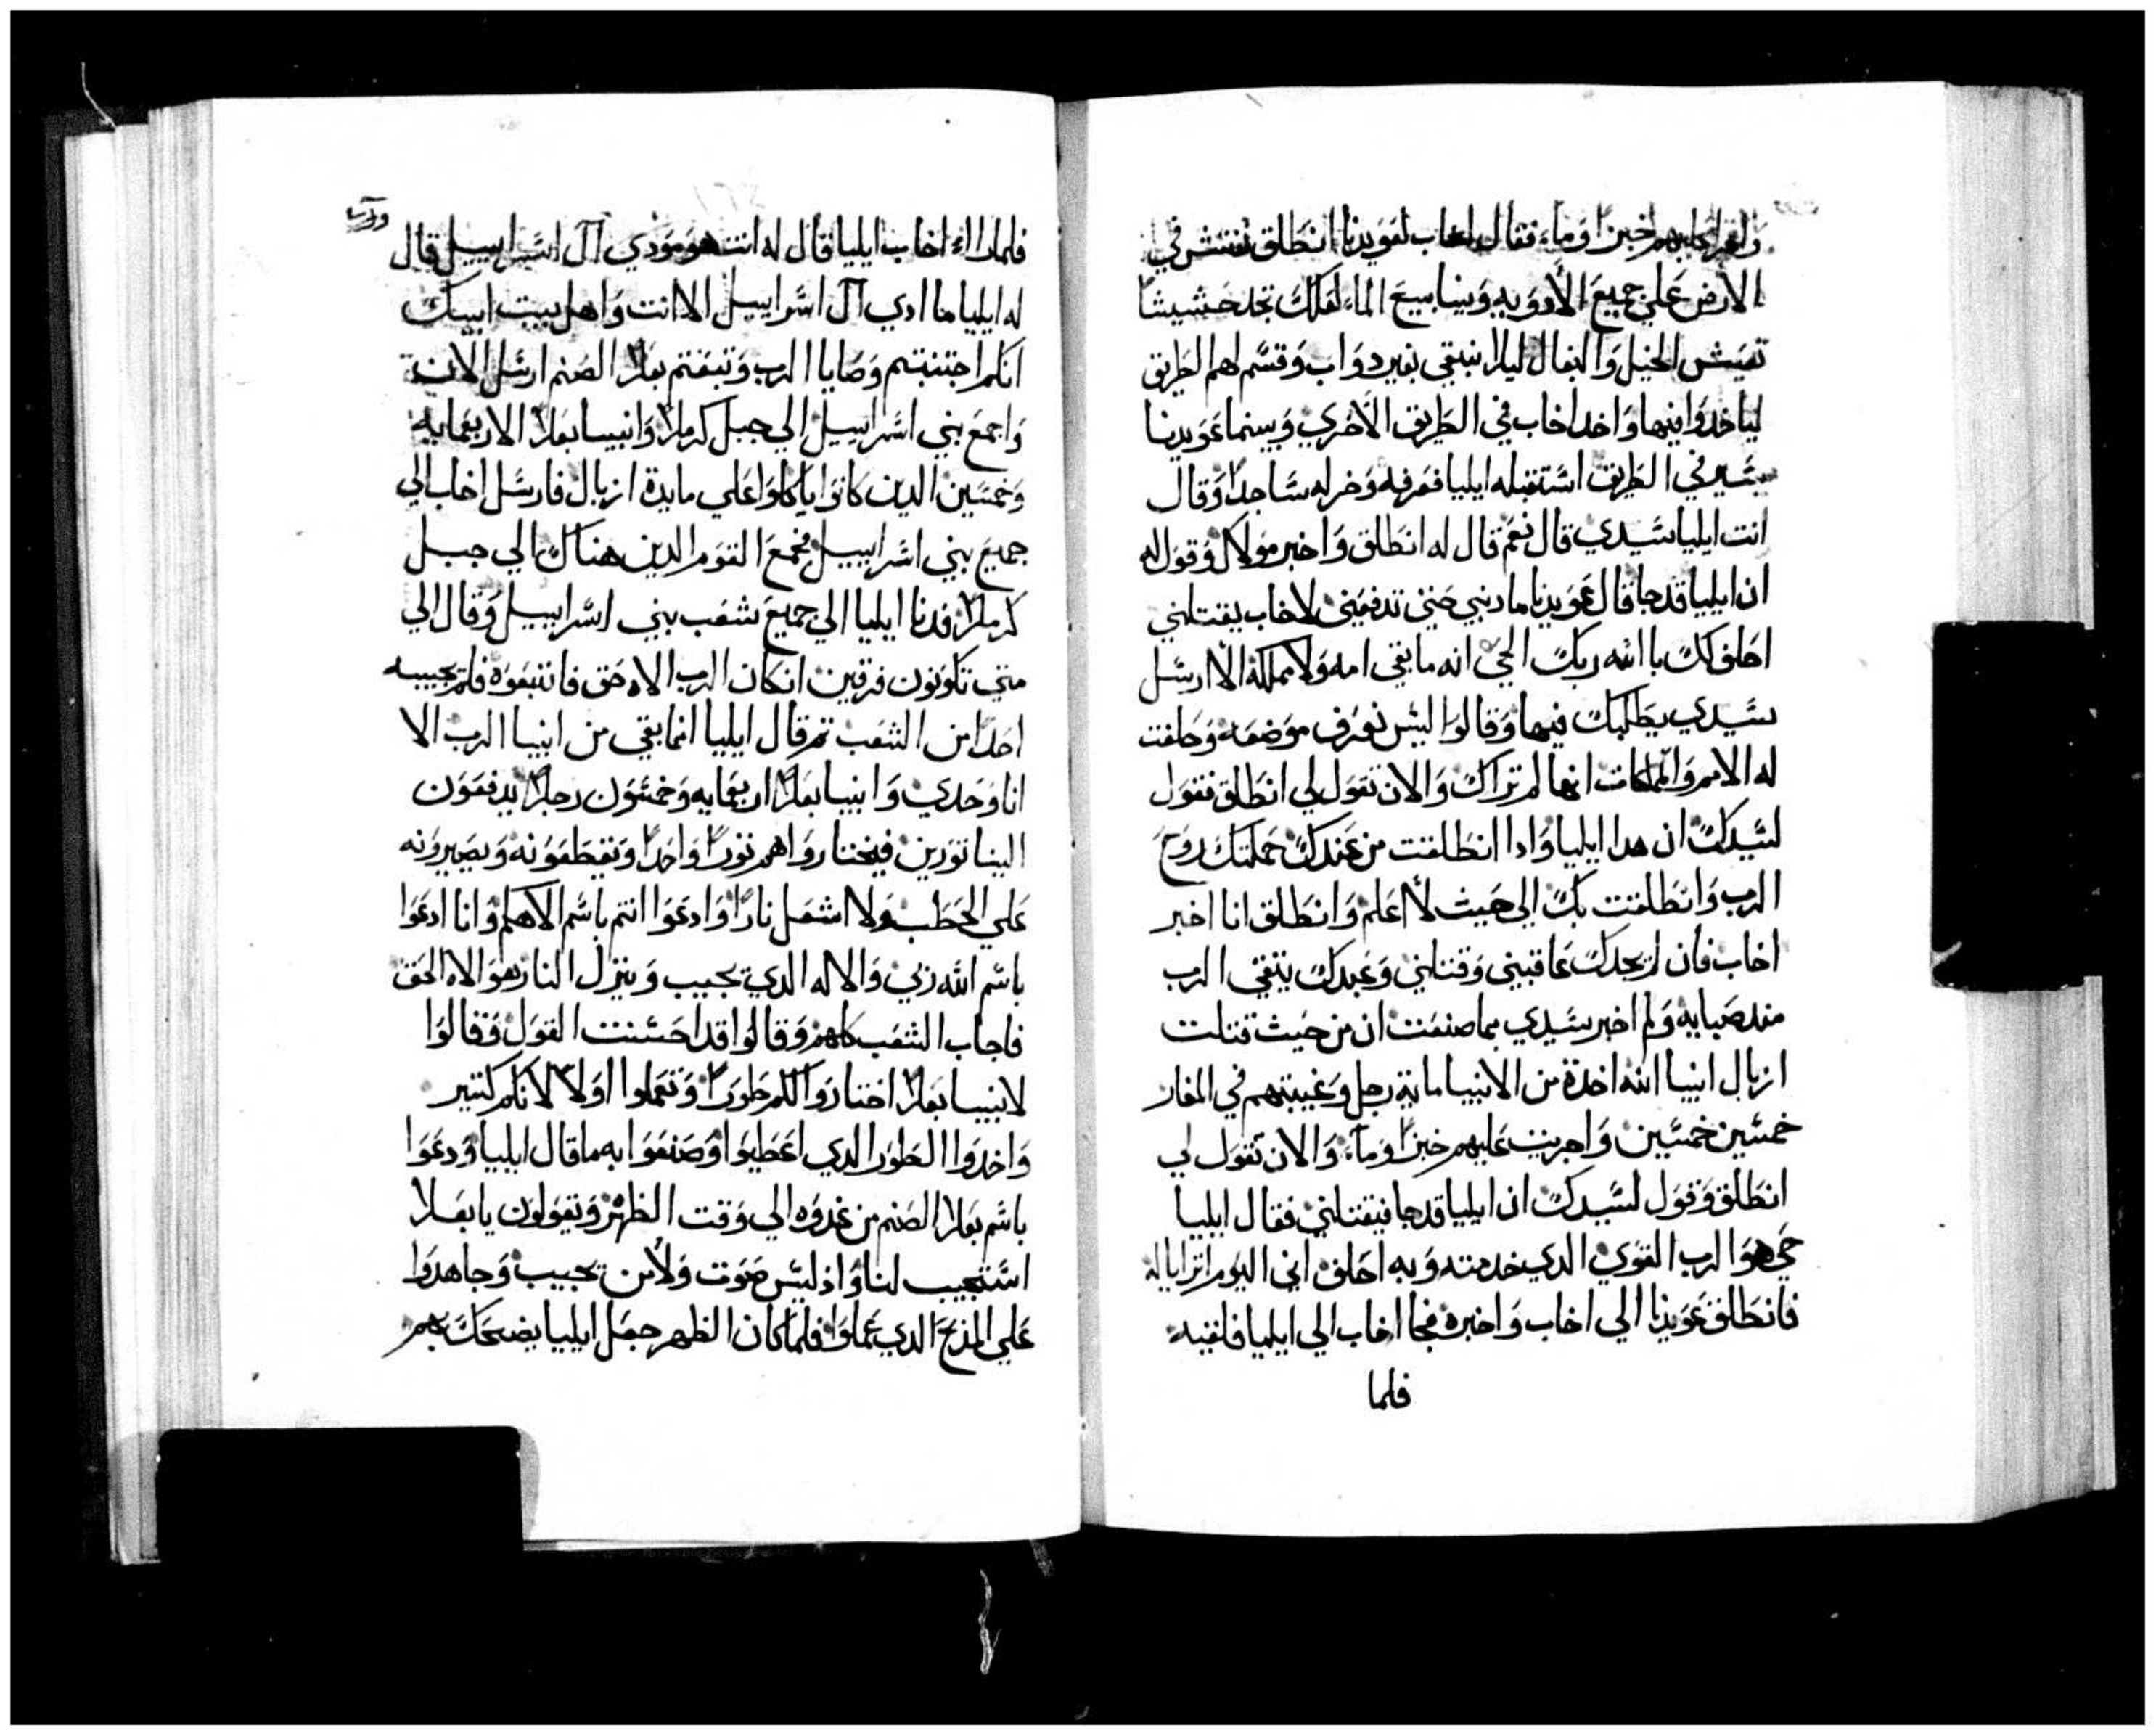 خبزا وماء فقال اخاب لعوبديا انطلق نفتش في
الارض علي جميع الأدويه وينابيع الماء لعلك تجد حشيشا
تعيش الخيل والبغال ليلا نبقي بغير دواب وقسم لهم الطريق
لياخدوا فيها واخد اخاب في الطريق الأخري وبينما عوبديا
يسير في الطريق استقبله ايليا فعرفه وخر له ساجدا وقال
انت ايليا سيدي قال نعم قال له انطلق واخبر مولاك وقول له
ان ايليا قد جا قال عوبديا ما دنبي حتي تدفعني لاخاب يقتلني
احلف لك باالله ربك الحي انه ما بقي امه ولا مملكة الا ارسل
سيدي يطلبك فيها وقالوا ليس نعرف موضعه وحلفت
له الامم والمملكات انها لم تراك والان تقول لي انطلق فقول
لسيدك ان هدا ايليا وادا انطلقت من عندك حملتك روح
الرب وانطلقت بك الي حيث لا اعلم وانطلق انا اخبر
اخاب فان لم يجدك عاقبني وقتلني وعبدك يتقي الرب
مند صبايه ولم اخبر سيدي بما صنعت ان من حيث قتلت
ازبال انبيا الله اخدة من الانبيا ماية رجل وغيبتهم في المغار
خمسين خمسين واجريت عليهم خبزا وماء والان تقول لي
انطلق وقول لسيدك ان ايليا قد جا فيقتلني فقال ايليا
حي هو الرب القوي الدي خدمته وبه احلف اني اليوم اترايا له
فانطلق عوبديا الي اخاب واخبره فجا اخاب الي ايليا فلقيه
فلما
فلما راء اخاب ايليا قال له انت هو مودي آل اسراييل قال
له ايليا ما ادي آل اسراييل الا انت واهل بيت ابيك
انكم اجتنبتم وصايا الرب وتبعتم بعلا الصنم ارسل الان
واجمع بني اسراييل الي جبل كرملا وانبيا بعلا الاربعمايه
وخمسين الدين كانوا ياكلوا علي مايدة ازبال فارسل اخاب الي
جميع بني اسراييل فجمع القوم الدين هناك الي جبل
كرملا فدنا ايليا الي جميع شعب بني اسراييل وقال الي
متي تكونون فرقين ان كان الرب الاه حق فاتبعوه فلم يجيبه
احدا من الشعب تم قال ايليا انما بقي من انبيا الرب الا
انا وحدي وانبيا بعلا اربعمايه وخمسون رجلا يدفعون
الينا تورين فيختاروا هم تورا واحدا ويقطعونه ويصيرونه
علي الحطب ولا اشعل نارا وادعوا انتم باسم الاهكم وانا ادعوا
باسم الله ربي والاله الدي يجيب وينزل النار هو الاه الحق
فاجاب الشعب كلهم وقالوا قد احسنت القول وقالوا
لانبيا بعلا اختاروا لكم طورا وتعملوا اولا لانكم كتير
واخدوا الطور الدي اعطيوا وصنعوا به ما قال ايليا ودعوا
باسم بعلا الصنم من غدوه الي وقت الظهر ويقولون يا بعلا
استجيب لنا واذ ليس صوت ولا من يجيب وجاهدوا
علي المذبح الدي عملوا فلما كان الظهر جعل ايليا يضحك بهم